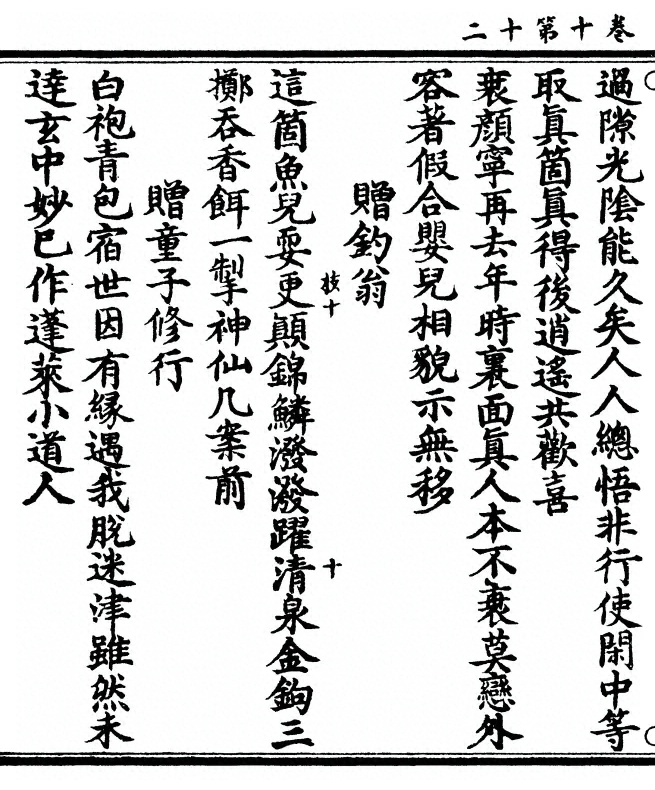 卷十第十二
過隙光陰能久矣人人總悟非行使閑中等
取眞箇眞得後逍遙共歡喜
衰顏寧再去年時裏面眞人本不衰莫戀外
容著假合嬰兒相貌示無移
贈釣翁
這箇魚兒耍更顛錦鱗潑潑躍清泉金鉤三
擲吞香餌一掣神仙几案前
贈童子修行
白袍青包宿世因有緣遇我脫迷津雖然未
達玄中妙已作蓬萊小道人